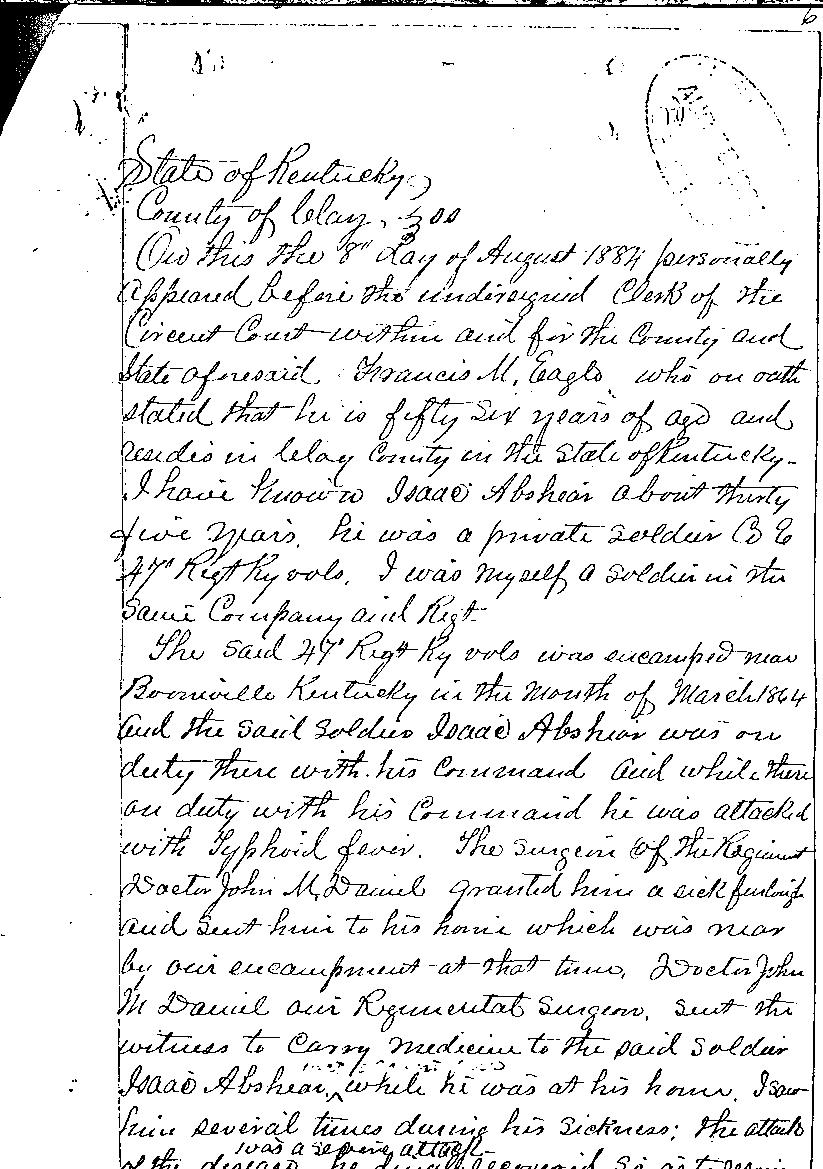 6
State of Kentucky
County of Clay, ss
On this the 8" day of August 1884 personally
appeared before the undersigned Clerk of the
Circuit Court within and for the County and
State aforesaid Francis M. Eagle who on oath
stated that he is fifty six years of age and
resides in Clay County in the State of Kentucky.
I have known Isaac Abshear about thirty
five years. he was a private soldier Co E
47" Regt Ky vols. I was myself a soldier in the
same Company and Regt.
The said 47" Regt Ky vols was encamped near
Booneville Kentucky in the month of March 1864
and the said soldier Isaac Abshear was on
duty there with his command and while there
on duty with his command he was attacked
with Typhoid fever. The surgeon of the Regiment
Doctor John M. Daniel granted him a sick furlough
and sent him to his home which was near
by our encampment at that time. Doctor John
M Daniel our Regimental surgeon, sent the
witness to carry medicine to the said soldier
Isaac Abshear, while he was at his home. I saw
him several times during his sickness; the attack
was a severe attack
of the disease he